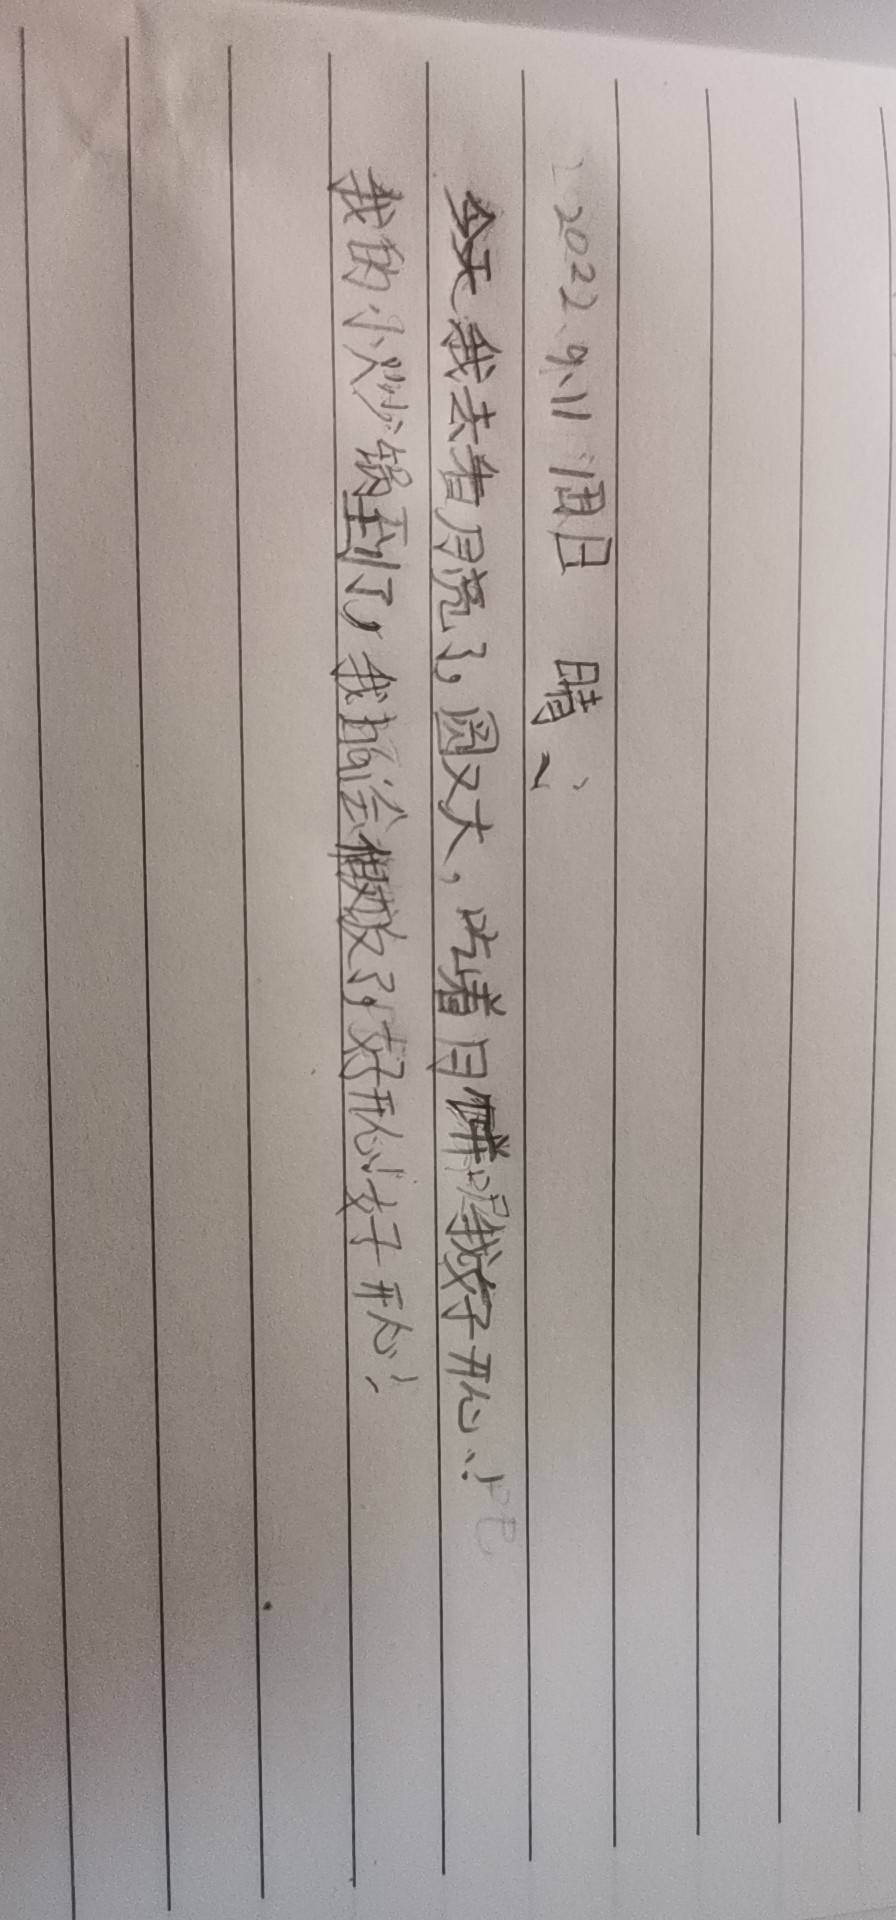 2022.9.11 周日 晴
今天我去看月亮了,圆又大,吃着月饼呢我好开心!
我的小炒锅到了,我搞会做饭了,好开心!好开心!